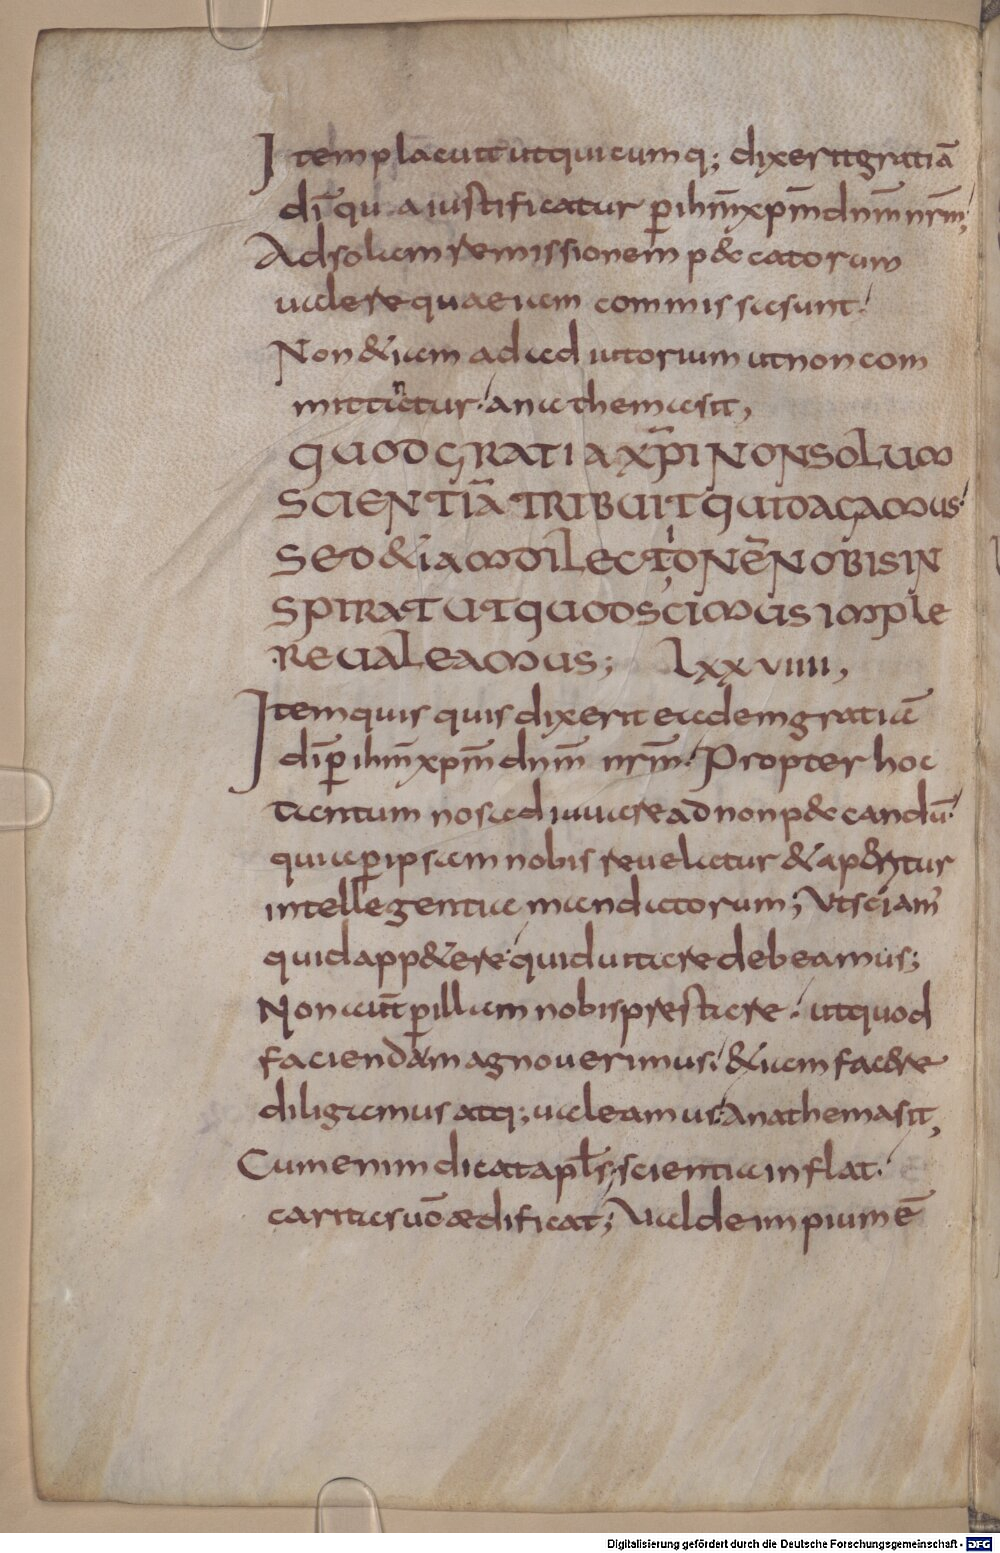 Item placuit ut quicumq; dixerit gratiā
dī qu a iustificatur p̱ ihm̄ xpm̄ dnm̄ nrm̄;
Ad solam remissionem p&catorum
ualere quae iam commissa sunt.
Non &iam ad adiutorium ut non com
mittantur. anathema sit,
QUOD GRATIA XP̄I NON SOLUM
SCIENTIĀ TRIBUIT QUID AGAMUS.
SED &IAM DILECTIONĒ NOBIS IN
SPIRAT UT QUOD SCIMUS IMPLE
RE UALEAMUS; LXXVIIII,
Item quisquis dixerit eadem gratiā
dī p̱ ihm̄ xpm̄ dnm̄ nrm̄. Propter hoc
tantum nos adiuuare ad non p&candū.
quia p̱ ipsam nobis reuelatur & aperitur
intellegentia mandatorum; Ut sciam'
quid app&ere quid uitare debeamus;
Non aut̄ p̱ illam nobis prestare. ut quod
faciendam agnouerimus. &iam facere
diligamus atq; ualeamus. Anathema sit,
Cum enim dicat apl̄s; scientia inflat.
caritas uō ædificat; Ualde impium ē
Digitalisierung gefördert durch die Deutsche Forschungsgemeinschaft - DFG